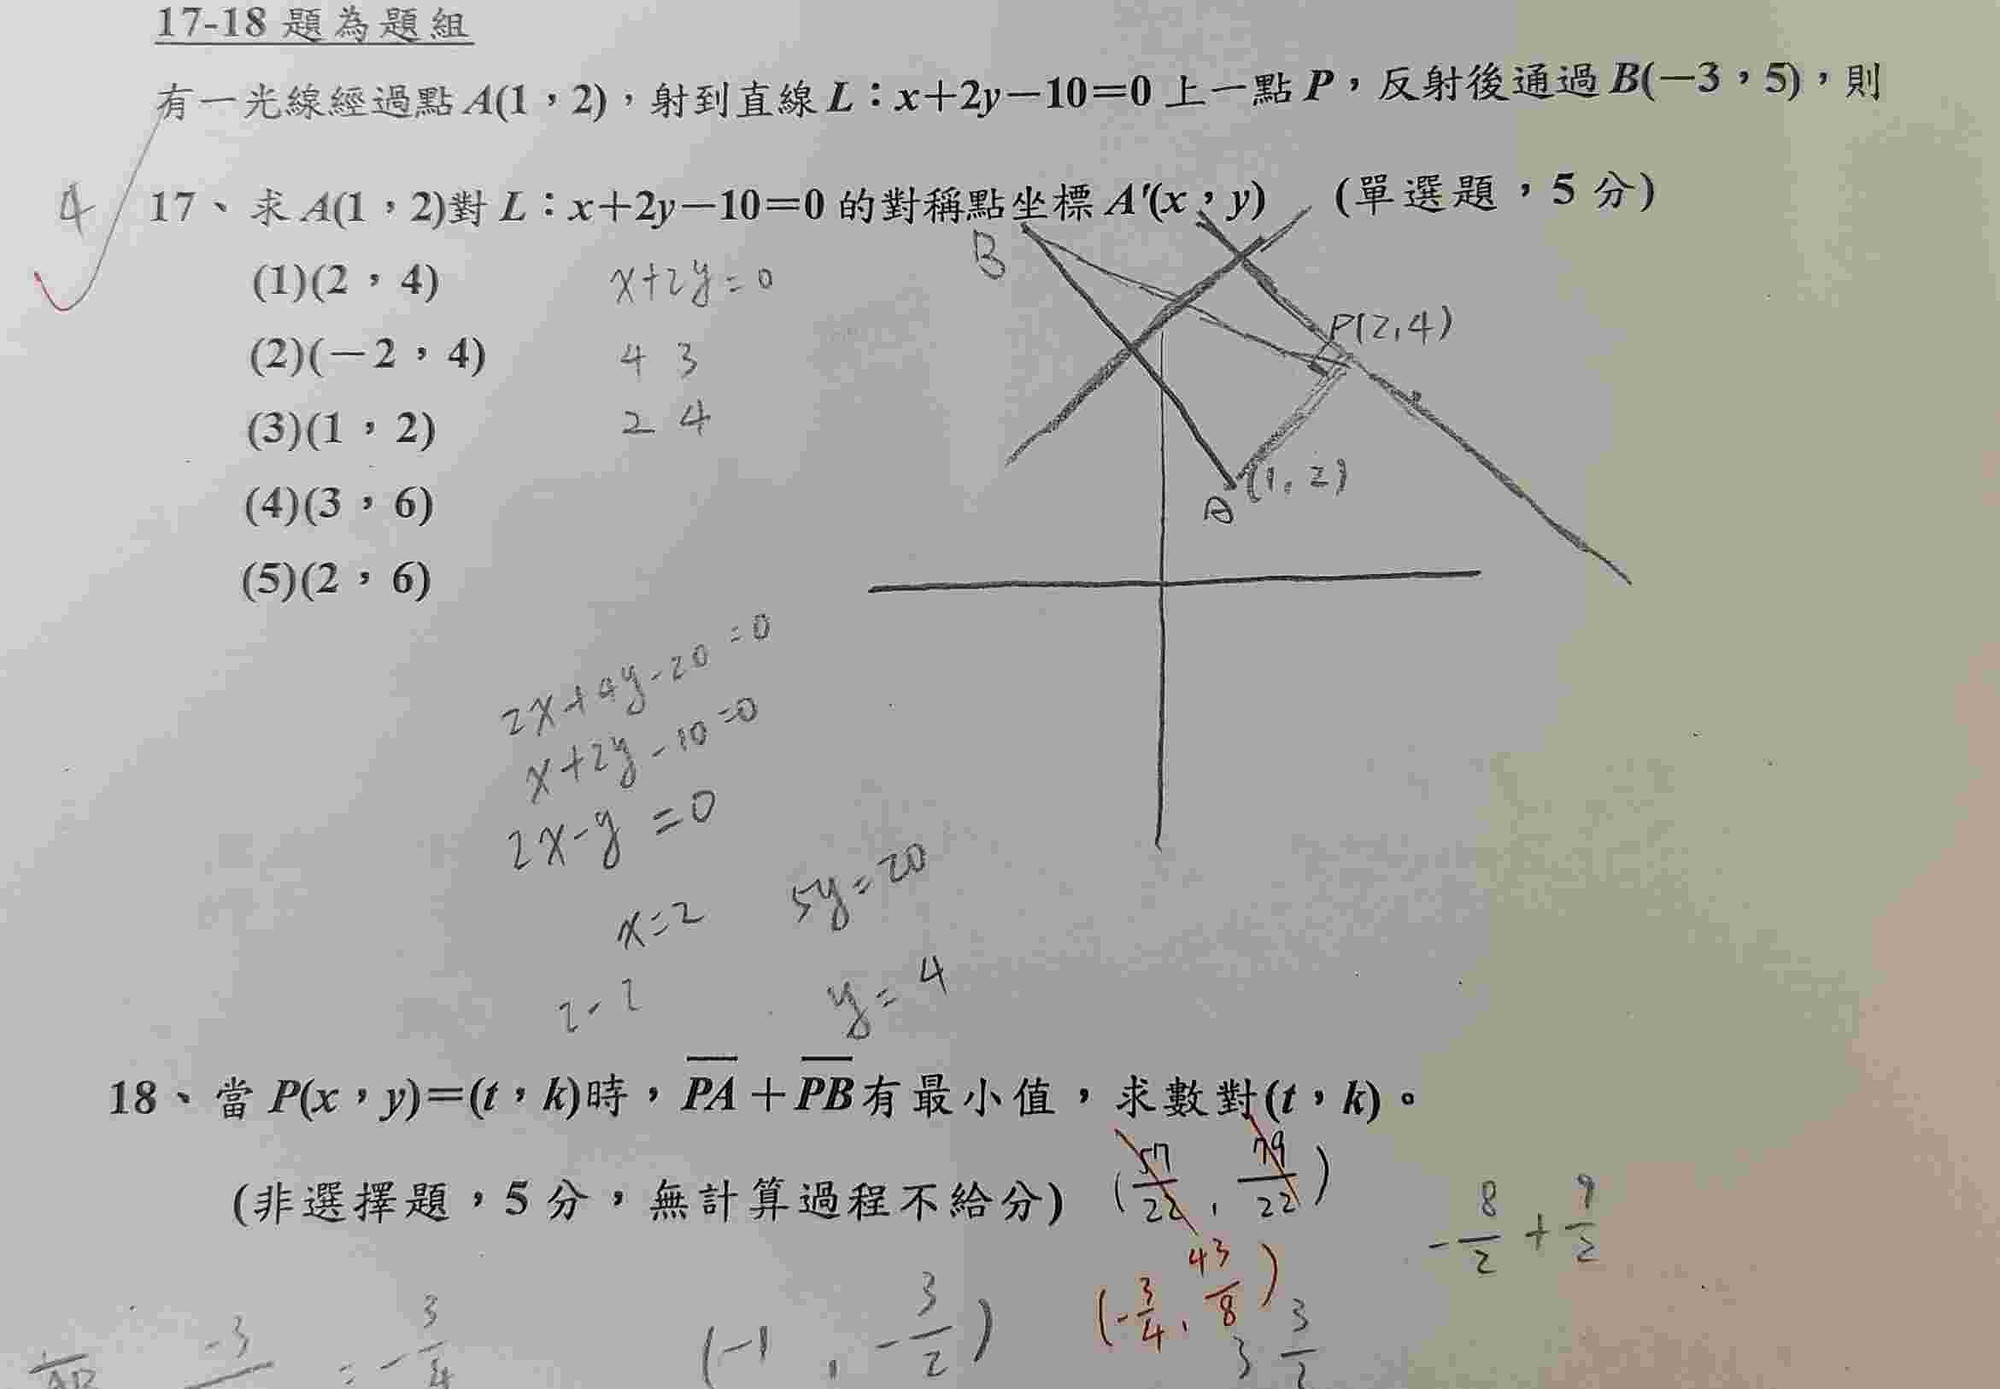 17-18 題為題組
有一光線經過點 A(1，2)，射到直線 L：x+2y−10=0 上一點 P，反射後通過 B(−3，5)，則
4 17、求 A(1，2)對 L：x+2y−10=0 的對稱點坐標 A'(x，y) (單選題，5 分)
(1)(2，4) x+2y=0 B
(2)(−2，4) 4 3 P(2,4)
(3)(1，2) 2 4
(4)(3，6) A (1,2)
(5)(2，6)
2x+4y-20=0
x+2y-10=0
2x-y=0
x=2 5y=20
2-2 y=4
18、當 P(x，y)=(t，k)時，PA+PB有最小值，求數對(t，k)。
(非選擇題，5 分，無計算過程不給分) (57/22, 79/22) -8/2+9/2
(-3/4, 43/8)
-3 = -3/4 (-1, -3/2) 3 3/2